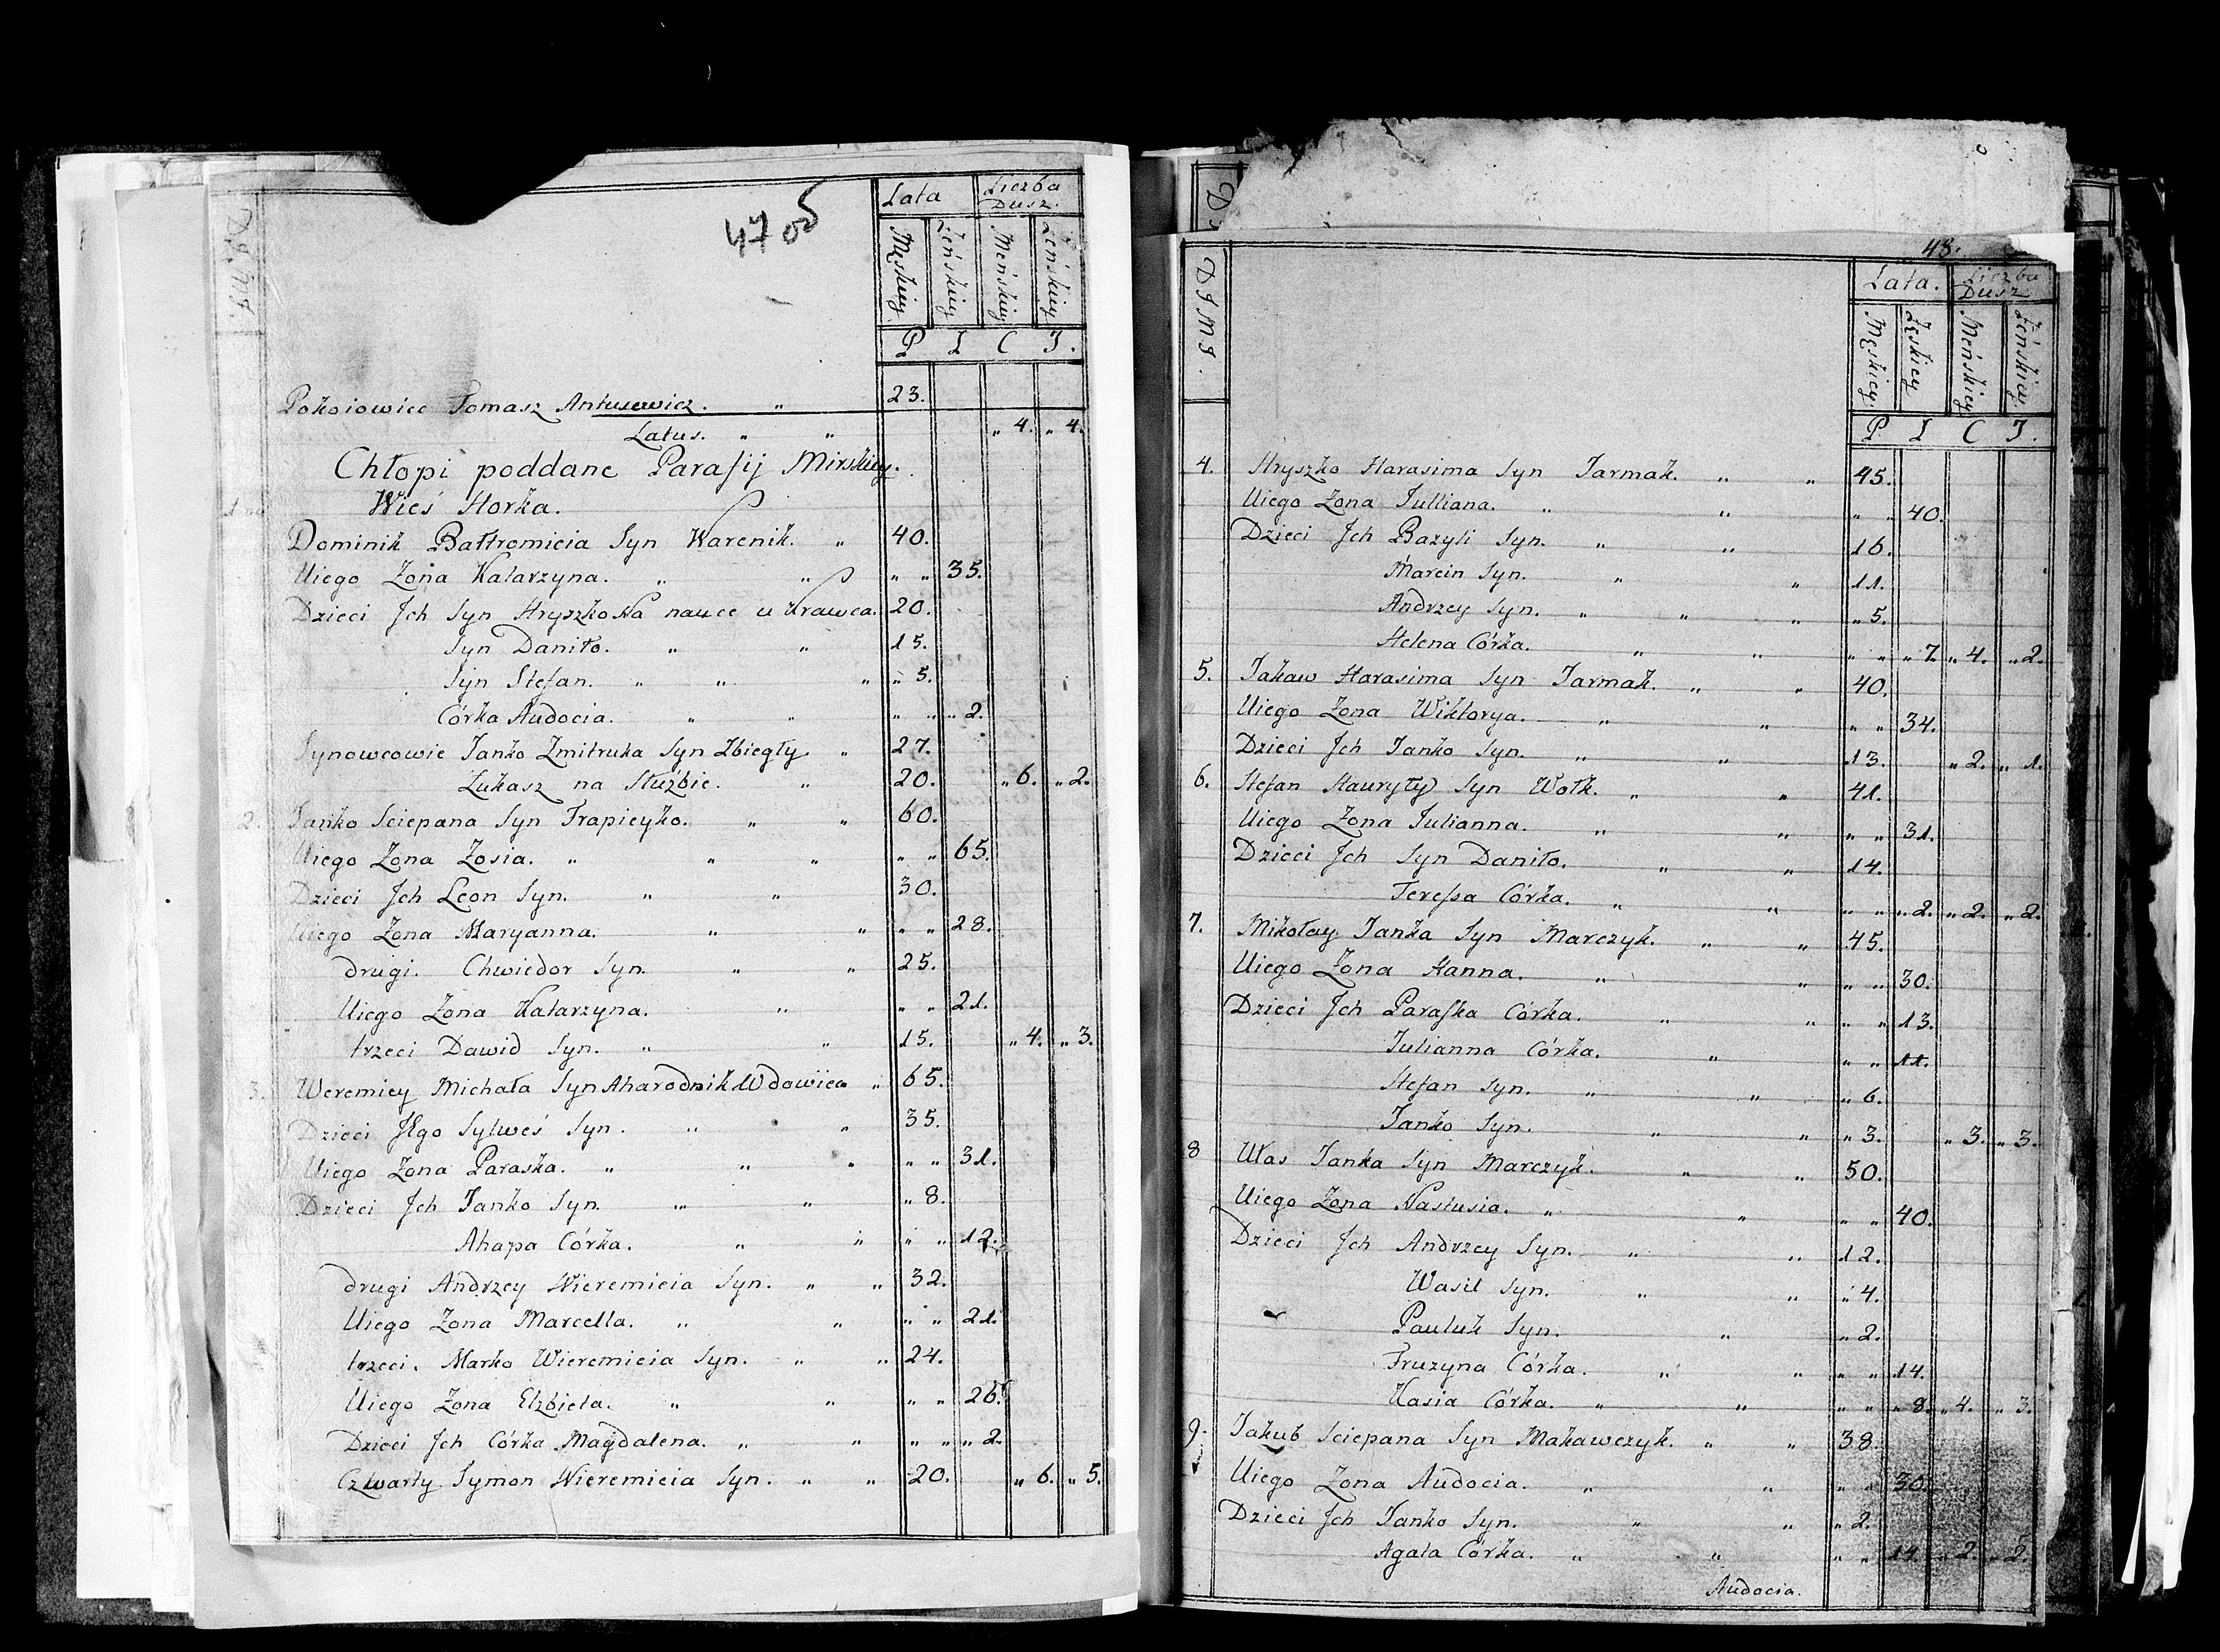 47 об
Lata Liczba Dusz.
Męskiey Żeńskiey Meńskiey Żeńskiey
P L C J.
Pokoiowiec Tomasz Antusewicz. " 23.
Latus. " " " 4. " 4.
Chłopi poddane Parafij Mirskiey.
Wieś Horka.
Dominik Bałtromieia Syn Warenik. " 40.
Uiego Zona Katarzyna. " " " " 35.
Dzieci Jch Syn Hryszko Na nauce u Krawca. 20.
Syn Daniło. " " 15.
Syn Stefan. " " " " 5.
Córka Audocia. " " " " " 2.
Synowcowie Janko Zmitruka Syn Zbiegły. " 27.
Łukasz na Służbie. " 20. " 6. " 2.
2. Janko Sciepana Syn Trapieyko. " " 60.
Uiego Zona Zosia. " " " " " 65.
Dzieci Jch Leon Syn. " " 30.
Uiego Zona Maryanna. " " " " 28.
drugi. Chwiedor Syn. " " 25.
Uiego Zona Katarzyna. " " " 21.
trzeci Dawid Syn. " " 15. " 4. " 3.
3. Weremiey Michała Syn Aharodnik Wdowiec " 65.
Dzieci Jego Sylweś Syn. " " 35.
Uiego Zona Paraska. " " " " " 31.
Dzieci Jch Janko Syn. " " " 8.
Ahapa Córka. " " " " 12.
drugi Andrzey Wieremieia Syn. " " 32.
Uiego Zona Marcella. " " " " 21.
trzeci. Marko Wieremieia Syn. " " 24.
Uiego Zona Elzbieta. " " " " 26.
Dzieci Jch Córka Magdalena. " " " " " 2.
Czwarty Symon Wieremieia Syn. " " 20. " 6. " 5.
48.
D J M J.
Lata. Liczba Dusz
Męskiey. Żęskiey Meńskiey Żeńskiey.
P L C J.
4. Hryszko Harasima Syn Jarmak. " " 45.
Uiego Zona Julliana. " " " " 40.
Dzieci Jch Bazyli Syn. " " 16.
Marcin Syn. " " 11.
Andrzey Syn. " " " " 5.
Helena Córka. " " " " " 7. " 4. " 2.
5. Jakaw Harasima Syn Jarmak. " " 40.
Uiego Zona Wiktorya. " " " " 34.
Dzieci Jch Janko Syn. " " 13. " 2. " 1.
6. Stefan Hauryły Syn Wołk. " " 41.
Uiego Zona Julianna. " " " " 31.
Dzieci Jch Syn Daniło. " " 14.
Teressa Córka. " " " " " 2. " 2. " 2.
7. Mikołay Janka Syn Marczyk. " " 45.
Uiego Zona Hanna. " " " " 30.
Dzieci Jch Paraska Córka. " " " " 13.
Julianna Córka. " " " 11.
Stefan Syn. " " " 6.
Janko Syn. " " " 3. " 3. " 3.
8 Ułas Janka Syn Marczyk. " " 50.
Uiego Zona Nastusia. " " " " 40.
Dzieci Jch Andrzey Syn. " " 12.
Wasil Syn. " " " 4.
Pauluk Syn. " " 2.
Fruzyna Córka. " " " " 14.
Kasia Córka. " " " " " 8. " 4. " 3.
9. Jakub Sciepana Syn Makawczyk. " " 38.
Uiego Zona Audocia. " " " " 30.
Dzieci Jch Janko Syn. " " " 2.
Agata Córka. " " " " 14. " 2. " 2.
Audocia.